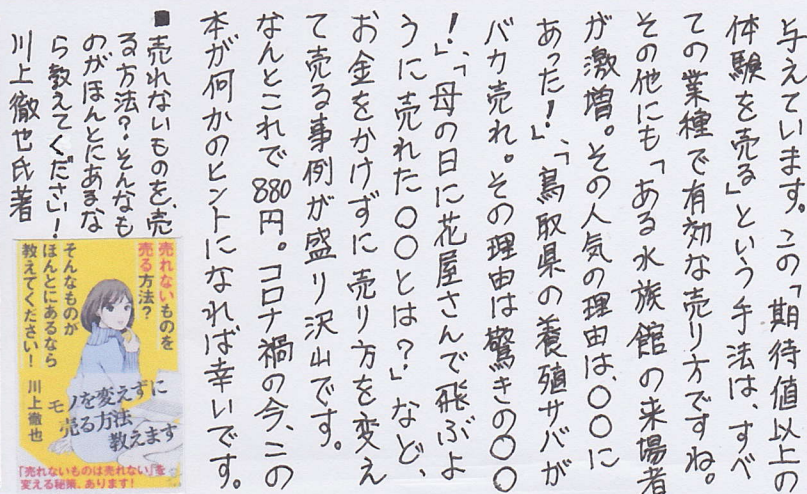 与えています。この「期待値以上の
体験を売る」という手法は、すべ
ての業種で有効な売り方ですね。
その他にも「ある水族館の来場者
が激増。その人気の理由は、〇〇に
あった!」、「鳥取県の養殖サバが
バカ売れ。その理由は驚きの〇〇
!」、「母の日に花屋さんで飛ぶよ
うに売れた〇〇とは?」など、
お金をかけずに売り方を変え
て売る事例が盛り沢山です。
なんとこれで880円。コロナ禍の今、この
本が何かのヒントになれば幸いです。
■売れないものを、売
る方法?そんなも
のがほんとにあるな
ら教えてください!
川上徹也氏著
売れないものを
売る方法?
そんなものが
ほんとにあるなら
教えてください!
川上徹也
モノを変えずに
売る方法
教えます
「売れないものは売れない」を
変える秘策、あります!